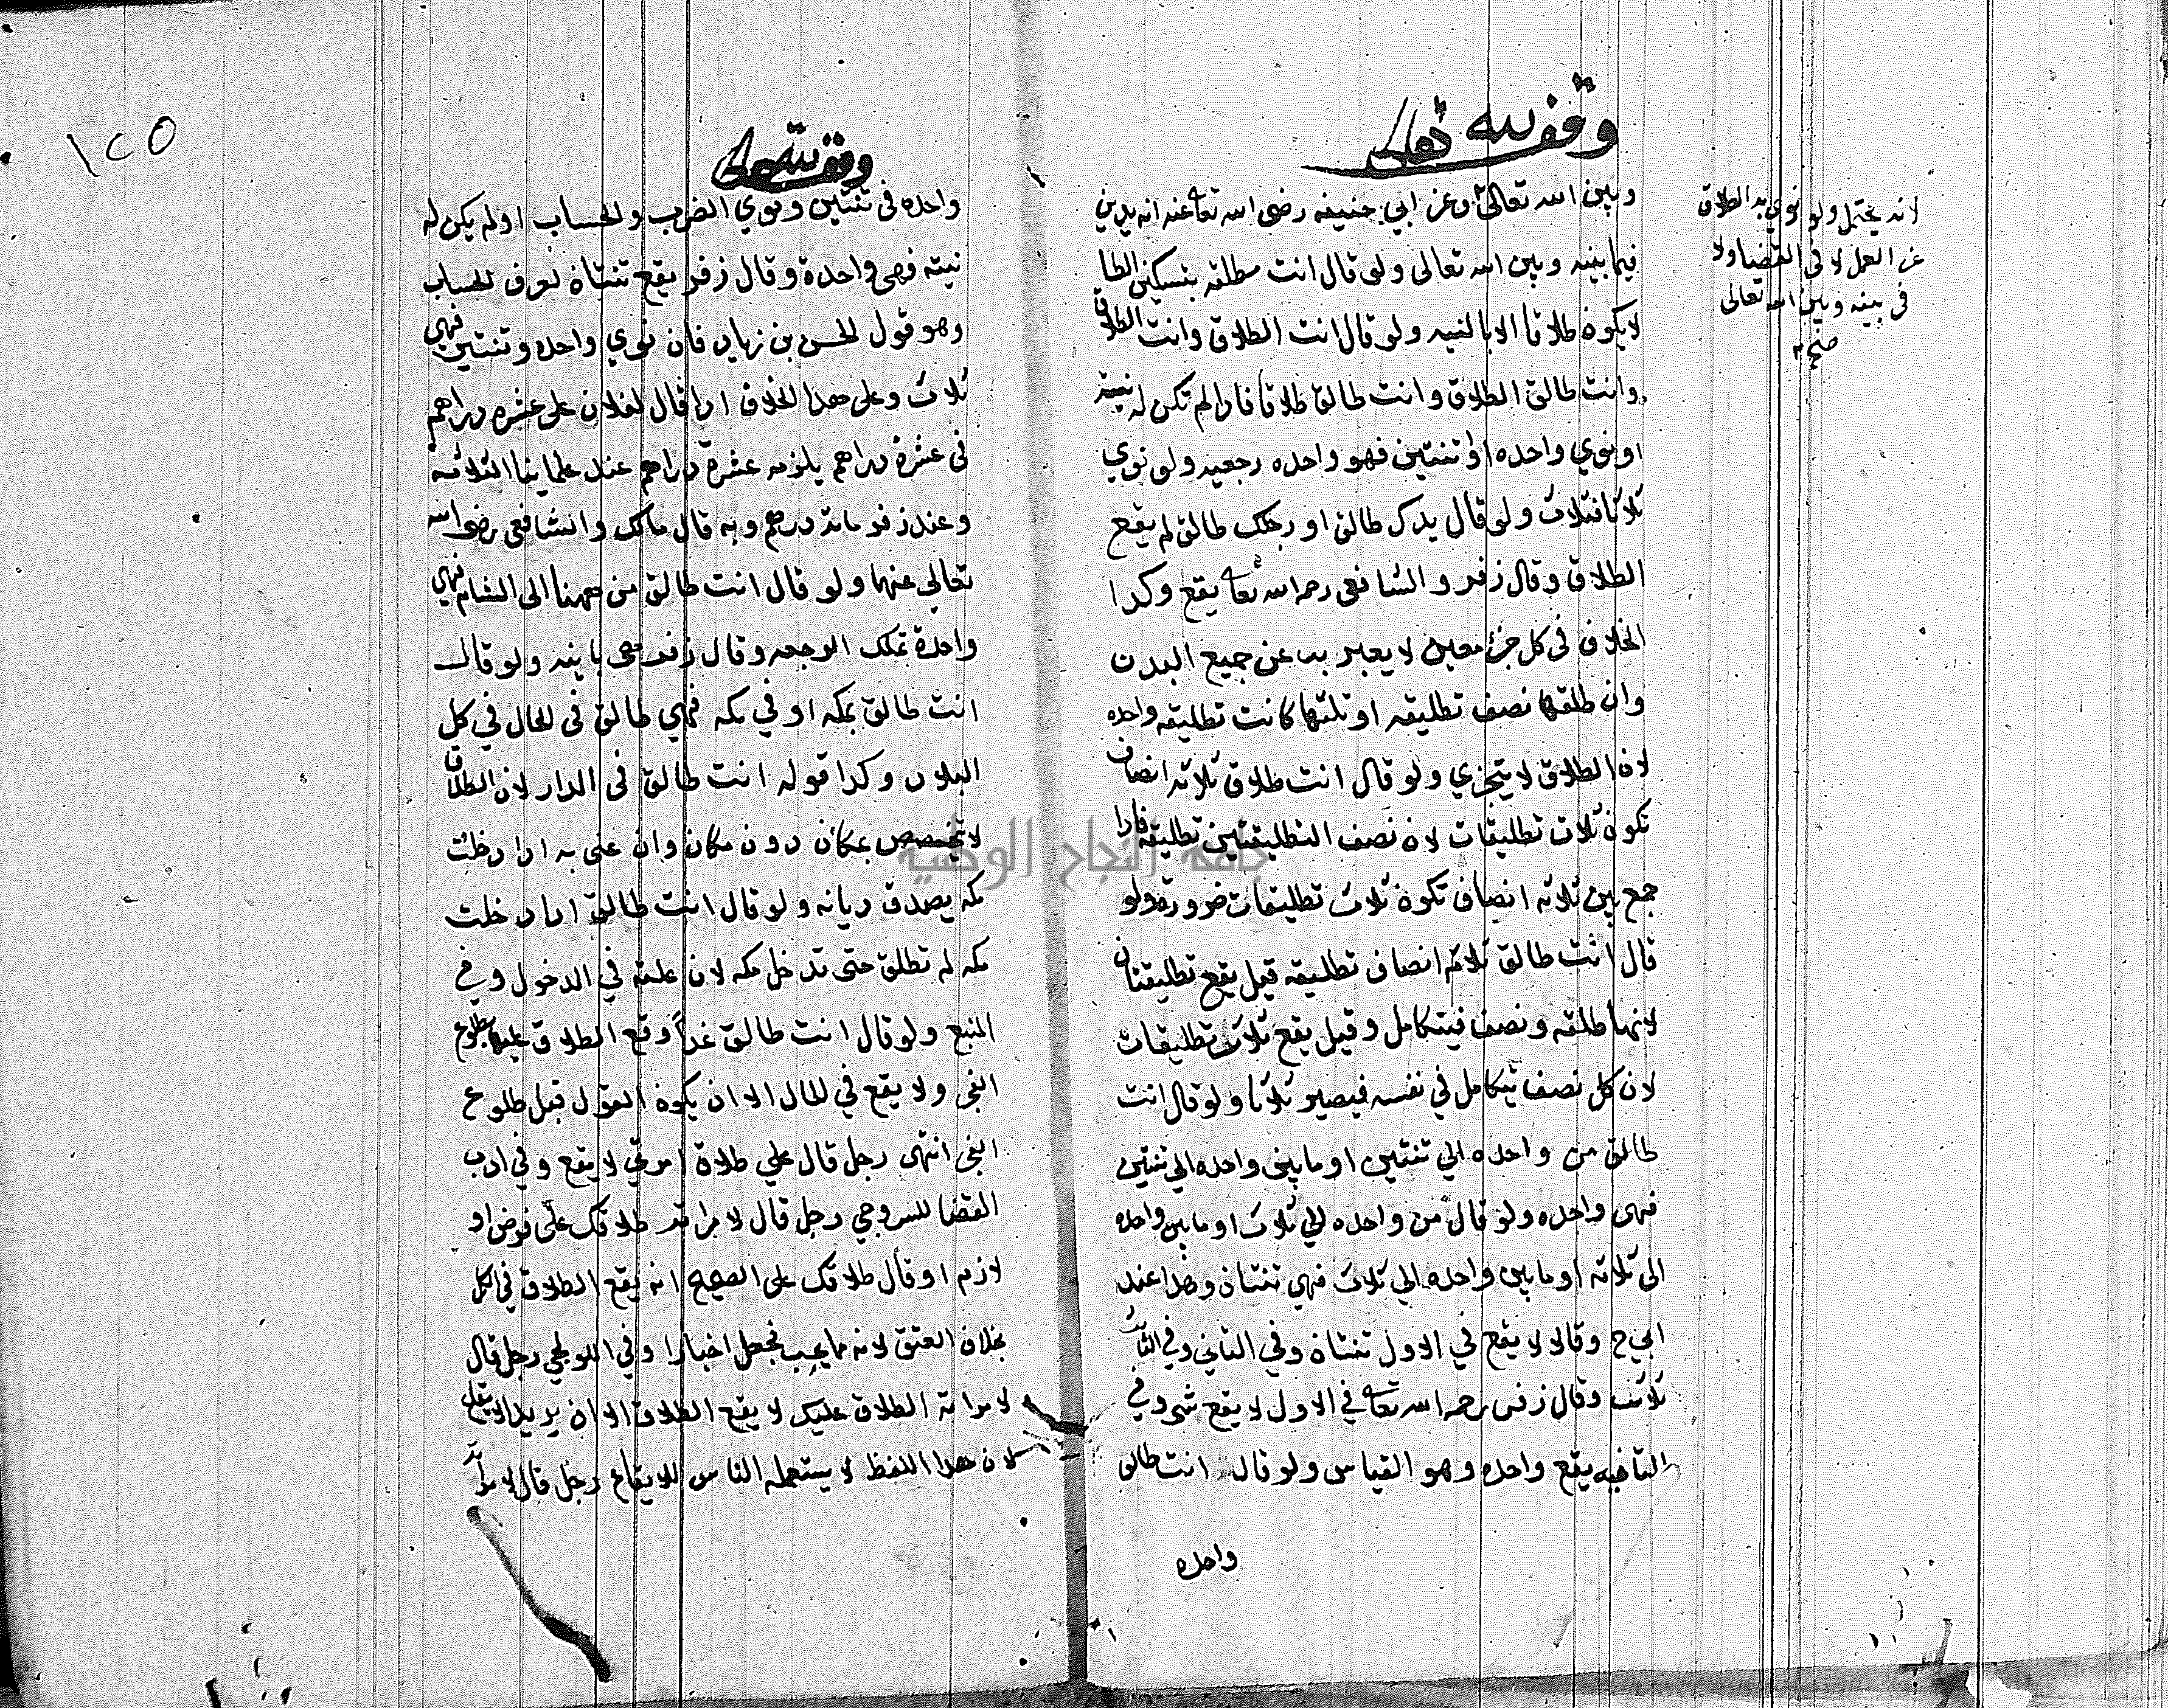 وقف لله تعالى
وبين الله تعالى وعن ابي حنيفه رضى الله تعا عنه انه يدين
فيما بينه وبين الله تعالى ولو قال انت مطلقه بتسكين الطا
لا يكون طلاقا الا بالنيه ولو قال انت الطلاق وانت الطلاق
وانت طالق الطلاق وانت طالق طلاقا فادا لم تكن له نيته
او نوي واحده او تنتين فهو واحده رجعيه ولو نوي
ثلاثا فثلاث ولو قال يدك طالق او رجلك طالق لم يقع
الطلاق وقال زفر والشافعى رحمه الله تعا يقع وكدا
الخلاف فى كل جزئ معين لا يعبر به عن جميع البدن
وان طلقها نصف تطليقه او تلتها كانت تطليقه واحده
لان الطلاق لا يتجزي ولو قال انت طلاق ثلاثه انصاف
تكون ثلاث تطليقات لان نصف التطليقتين تطليقه فادا
جمع بين ثلاثه انصاف تكون ثلاث تطليقات ضرورة ولو
قال انت طالق ثلاثه انصاف تطليقه قيل يقع تطليقتان
لانها طلقه ونصف فيتكامل وقيل يقع ثلاث تطليقات
لان كل نصف يتكامل في نفسه فيصير ثلاثا ولو قال انت
طالق من واحده الي تنتين او ما بين واحده الي تنتين
فهى واحده ولو قال من واحده الي ثلاث او ما بين واحده
الى ثلاثه او ما بين واحده الي ثلاث فهي تنتان وهدا عند
ابي ح وقالا لا يقع في الاول تنتان وفي التاني وفي التالث
ثلاث وقال زفر رحمه الله تعا في الاول لا يقع شى وفي
التانيه يقع واحده وهو القياس ولو قال انت طالق
واحده
لانه يحتمل ولو نوي به الطلاق
عن العمل لا فى القضا ولا
فى بينه وبين الله تعالى
صح
١٢٥
وقف لله تعالى
واحده فى تنتين ونوي الضرب والحساب او لم يكن له
نيته فهى واحدة وقال زفر يقع تنتان لعرف الحساب
وهو قول الحسن بن زياد فان نوي واحده وتنتين فهي
ثلاث وعلى هدا الخلاف ادا قال لفلان على عشره دراهم
فى عشرة دراهم يلزمه عشرة دراهم عند علماينا الثلاثه
وعند زفر مائه درهم وبه قال مالك والشافعى رضى الله
تعالي عنهما ولو قال انت طالق من ههنا الى الشام فهي
واحدة تملك الرجعه وقال زفر هى باينه ولو قال
انت طالق بمكه او في مكه فهي طالق فى الحال في كل
البلاد وكدا قوله انت طالق فى الدار لان الطلاق
لا يتخصص بمكان دون مكان وان عنى به ادا دخلت
مكه يصدق ديانه ولو قال انت طالق ادا دخلت
مكه لم تطلق حتى تدخل مكه لان علقه في الدخول وفي
المنبع ولو قال انت طالق غداً وقع الطلاق عليها بطلوع
الفجر ولا يقع في الحال الا ان يكون القول قبل طلوع
الفجر انتهى رجل قال علي طلاق امرتي لا يقع وفي ادب
القضا للسروجي رجل قال لامراته طلاقك علي فرض او
لازم او قال طلاقك على الصحيح انه يقع الطلاق في الكل
بخلاف العتق لانه مما يجب فجعل اخبارا وفي اللولجي رجل قال
لامراته الطلاق عليك لا يقع الطلاق الا ان يريد الايقاع
لان هدا اللفظ لا يستعمله الناس للايقاع رجل قال لامراته
جامعة النجاح الوطنية